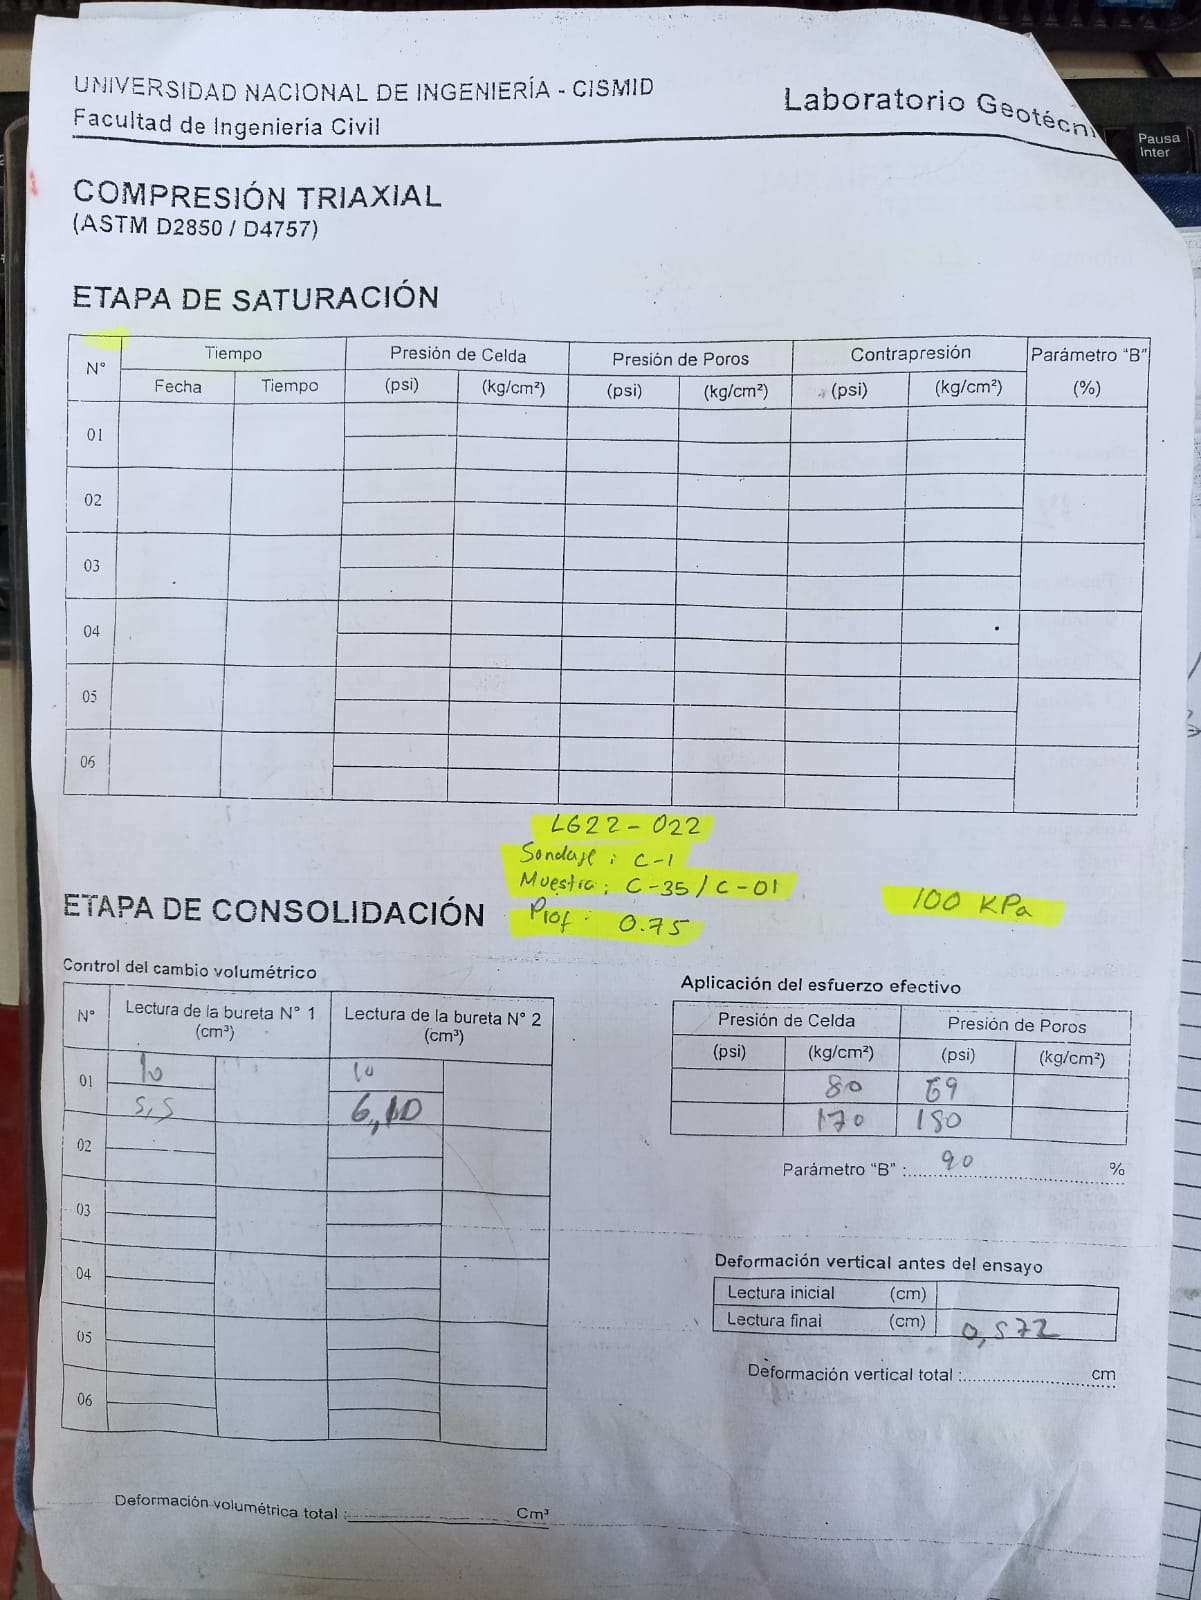 UNIVERSIDAD NACIONAL DE INGENIERÍA - CISMID
Facultad de Ingeniería Civil
Laboratorio Geotécni
Pausa
Inter
COMPRESIÓN TRIAXIAL
(ASTM D2850 / D4757)
ETAPA DE SATURACIÓN
N° Tiempo Presión de Celda Presión de Poros Contrapresión Parámetro "B"
Fecha Tiempo (psi) (kg/cm²) (psi) (kg/cm²) (psi) (kg/cm²) (%)
01
02
03
04
05
06
LG22-022
Sondaje : C-1
Muestra : C-35 / C-01
Prof. 0.75
100 KPa
ETAPA DE CONSOLIDACIÓN
Control del cambio volumétrico
N° Lectura de la bureta N° 1 (cm³) Lectura de la bureta N° 2 (cm³)
01 10 10
5,5
02
03
04
05
06
Deformación volumétrica total : Cm³
Aplicación del esfuerzo efectivo
Presión de Celda Presión de Poros
(psi) (kg/cm²) (psi) (kg/cm²)
80 69
170 150
Parámetro "B" : 90 %
Deformación vertical antes del ensayo
Lectura inicial (cm)
Lectura final (cm) 0,572
Deformación vertical total : cm